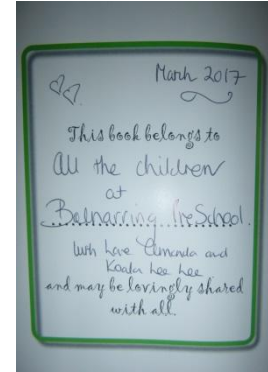 March 2017
This book belongs to
all the children
at
Balnarring PreSchool.
With Love Amanda and
Koala Lee Lee
and may be lovingly shared
with all.